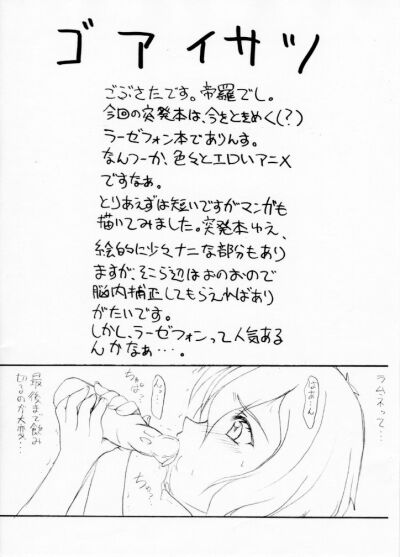 ゴアイサツ
ごぶさたです。帝羅でし。
今回の突発本は、今をときめく(?)
ラーゼフォン本でありんす。
なんつーか、色々とエロいアニメ
ですなぁ。
とりあえずは短いですがマンガも
描いてみました。突発本ゆえ、
絵的に少々ナニな部分もあり
ますが、そこら辺はおのおので
脳内補正してもらえればあり
がたいです。
しかし、ラーゼフォンって人気ある
んかなぁ…。
ラムネって…
なあーん
んっ
ちゅぱ
ちゅっ
最後まで飲み
切るのが大変…